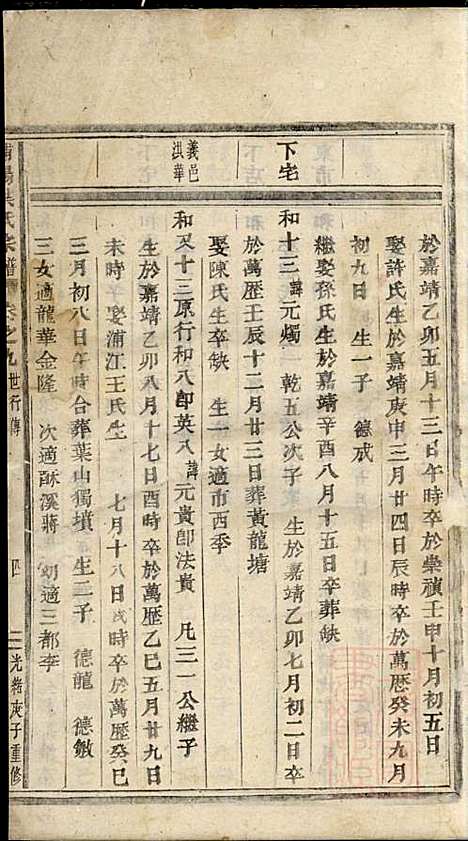 於嘉靖乙卯五月十三日午時卒於崇禎壬申十月初五日
娶許氏生於嘉靖庚申三月廿四日辰時卒於萬歷癸未九月
初九日　生一子　德戒
繼娶孫氏生於嘉靖辛酉八月十五日卒葬缺
下宅
和十三諱元燭　乾五公次子　生於嘉靖乙卯七月初二日卒
於萬歷壬辰十二月廿三日葬黃龍塘
娶陳氏生卒缺　生一女適市西季
義邑洪華
和又十三原行和八郎英八諱元貴郎法貴　凡三一公繼子
生於嘉靖乙卯八月十七日酉時卒於萬歷乙巳五月廿九日
未時　娶浦江王氏生　七月十八日戌時卒於萬歷癸巳
三月初八日午時合葬葉山獨墳　生二子　德龍　德敏
三女適龍華金隆　次適酥溪蔣　幼適三都李
氏宗譜　卷之九　世行傳　四　光緒庚子重修